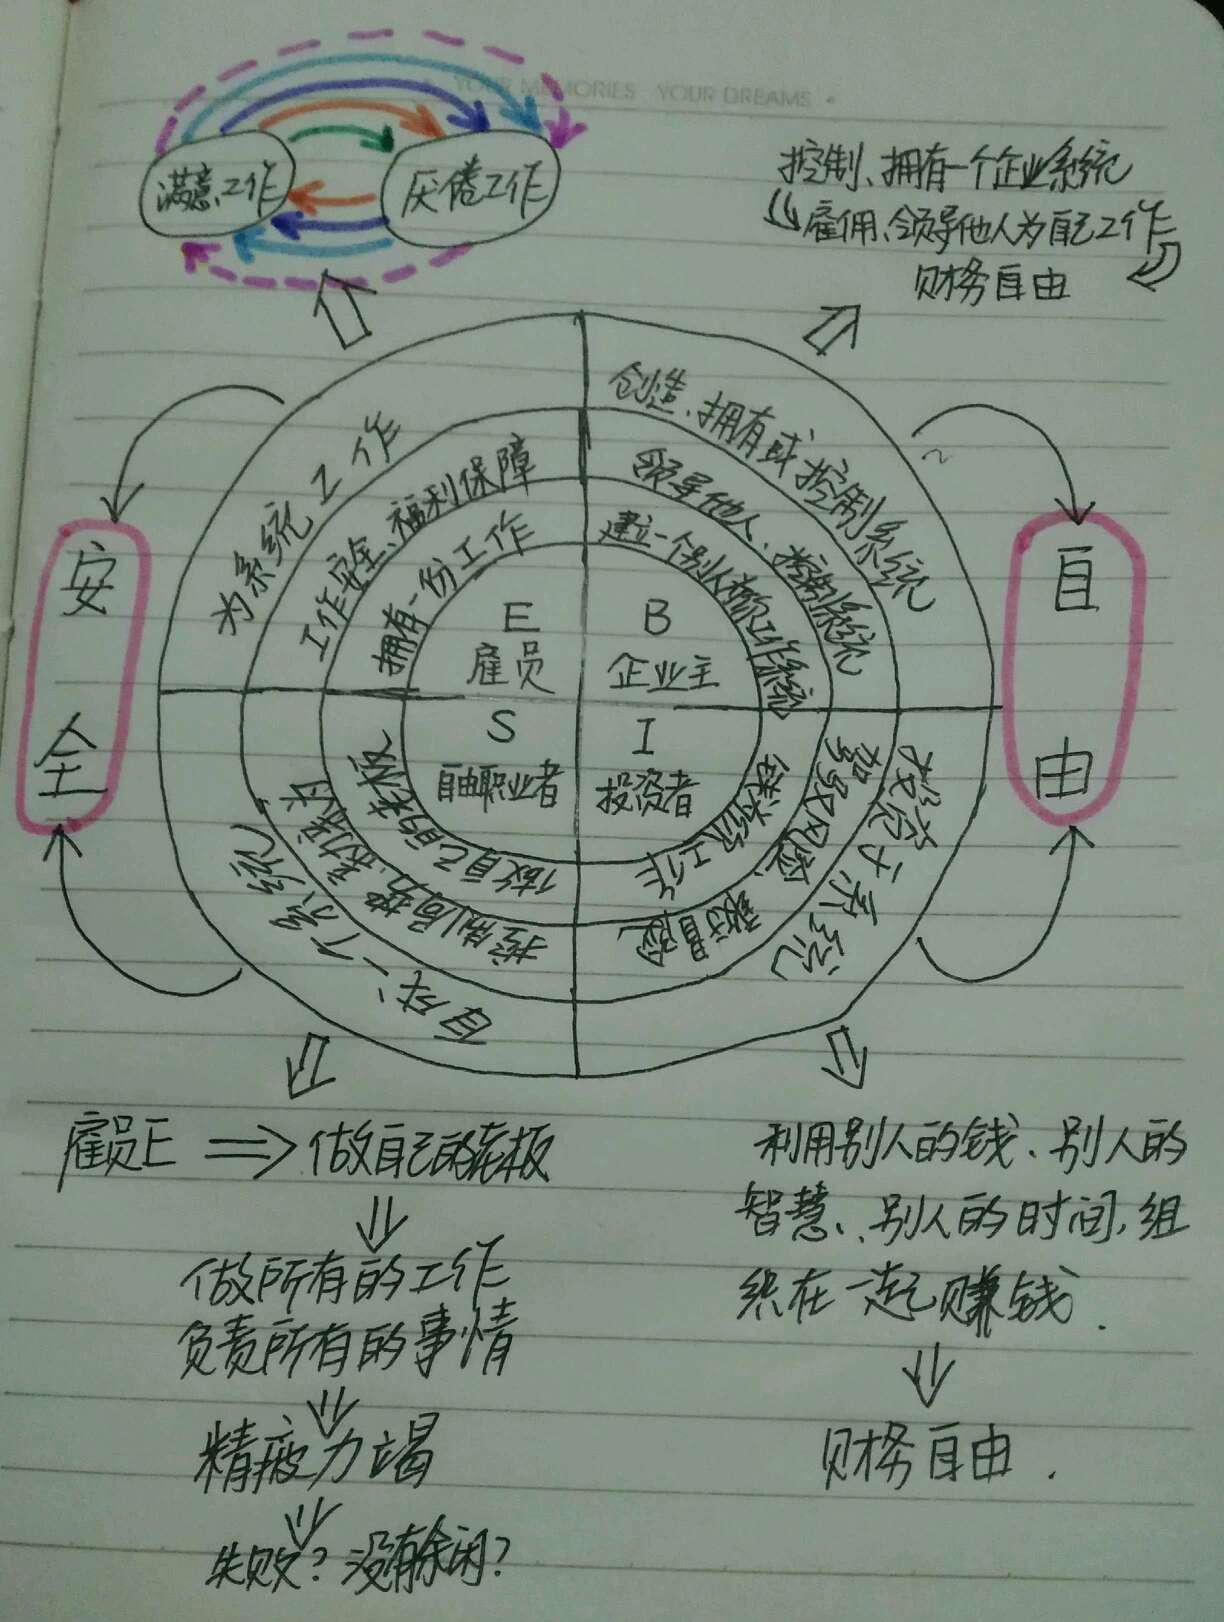 YOUR MEMORIES YOUR DREAMS
满意工作
厌倦工作
控制、拥有一个企业系统
雇佣、领导他人为自己工作
财务自由
为系统工作
工作安全、福利保障
拥有一份工作
创造、拥有或控制系统
领导他人、控制系统
建立一个别人为你工作系统
安全
自由
E
雇员
B
企业主
S
自由职业者
I
投资者
做自己的老板
自成一个系统
钱为你工作
投资于系统
雇员E => 做自己的老板
做所有的工作
负责所有的事情
精疲力竭
失败?没有余闲?
利用别人的钱、别人的
智慧、别人的时间,组
织在一起赚钱.
财务自由.